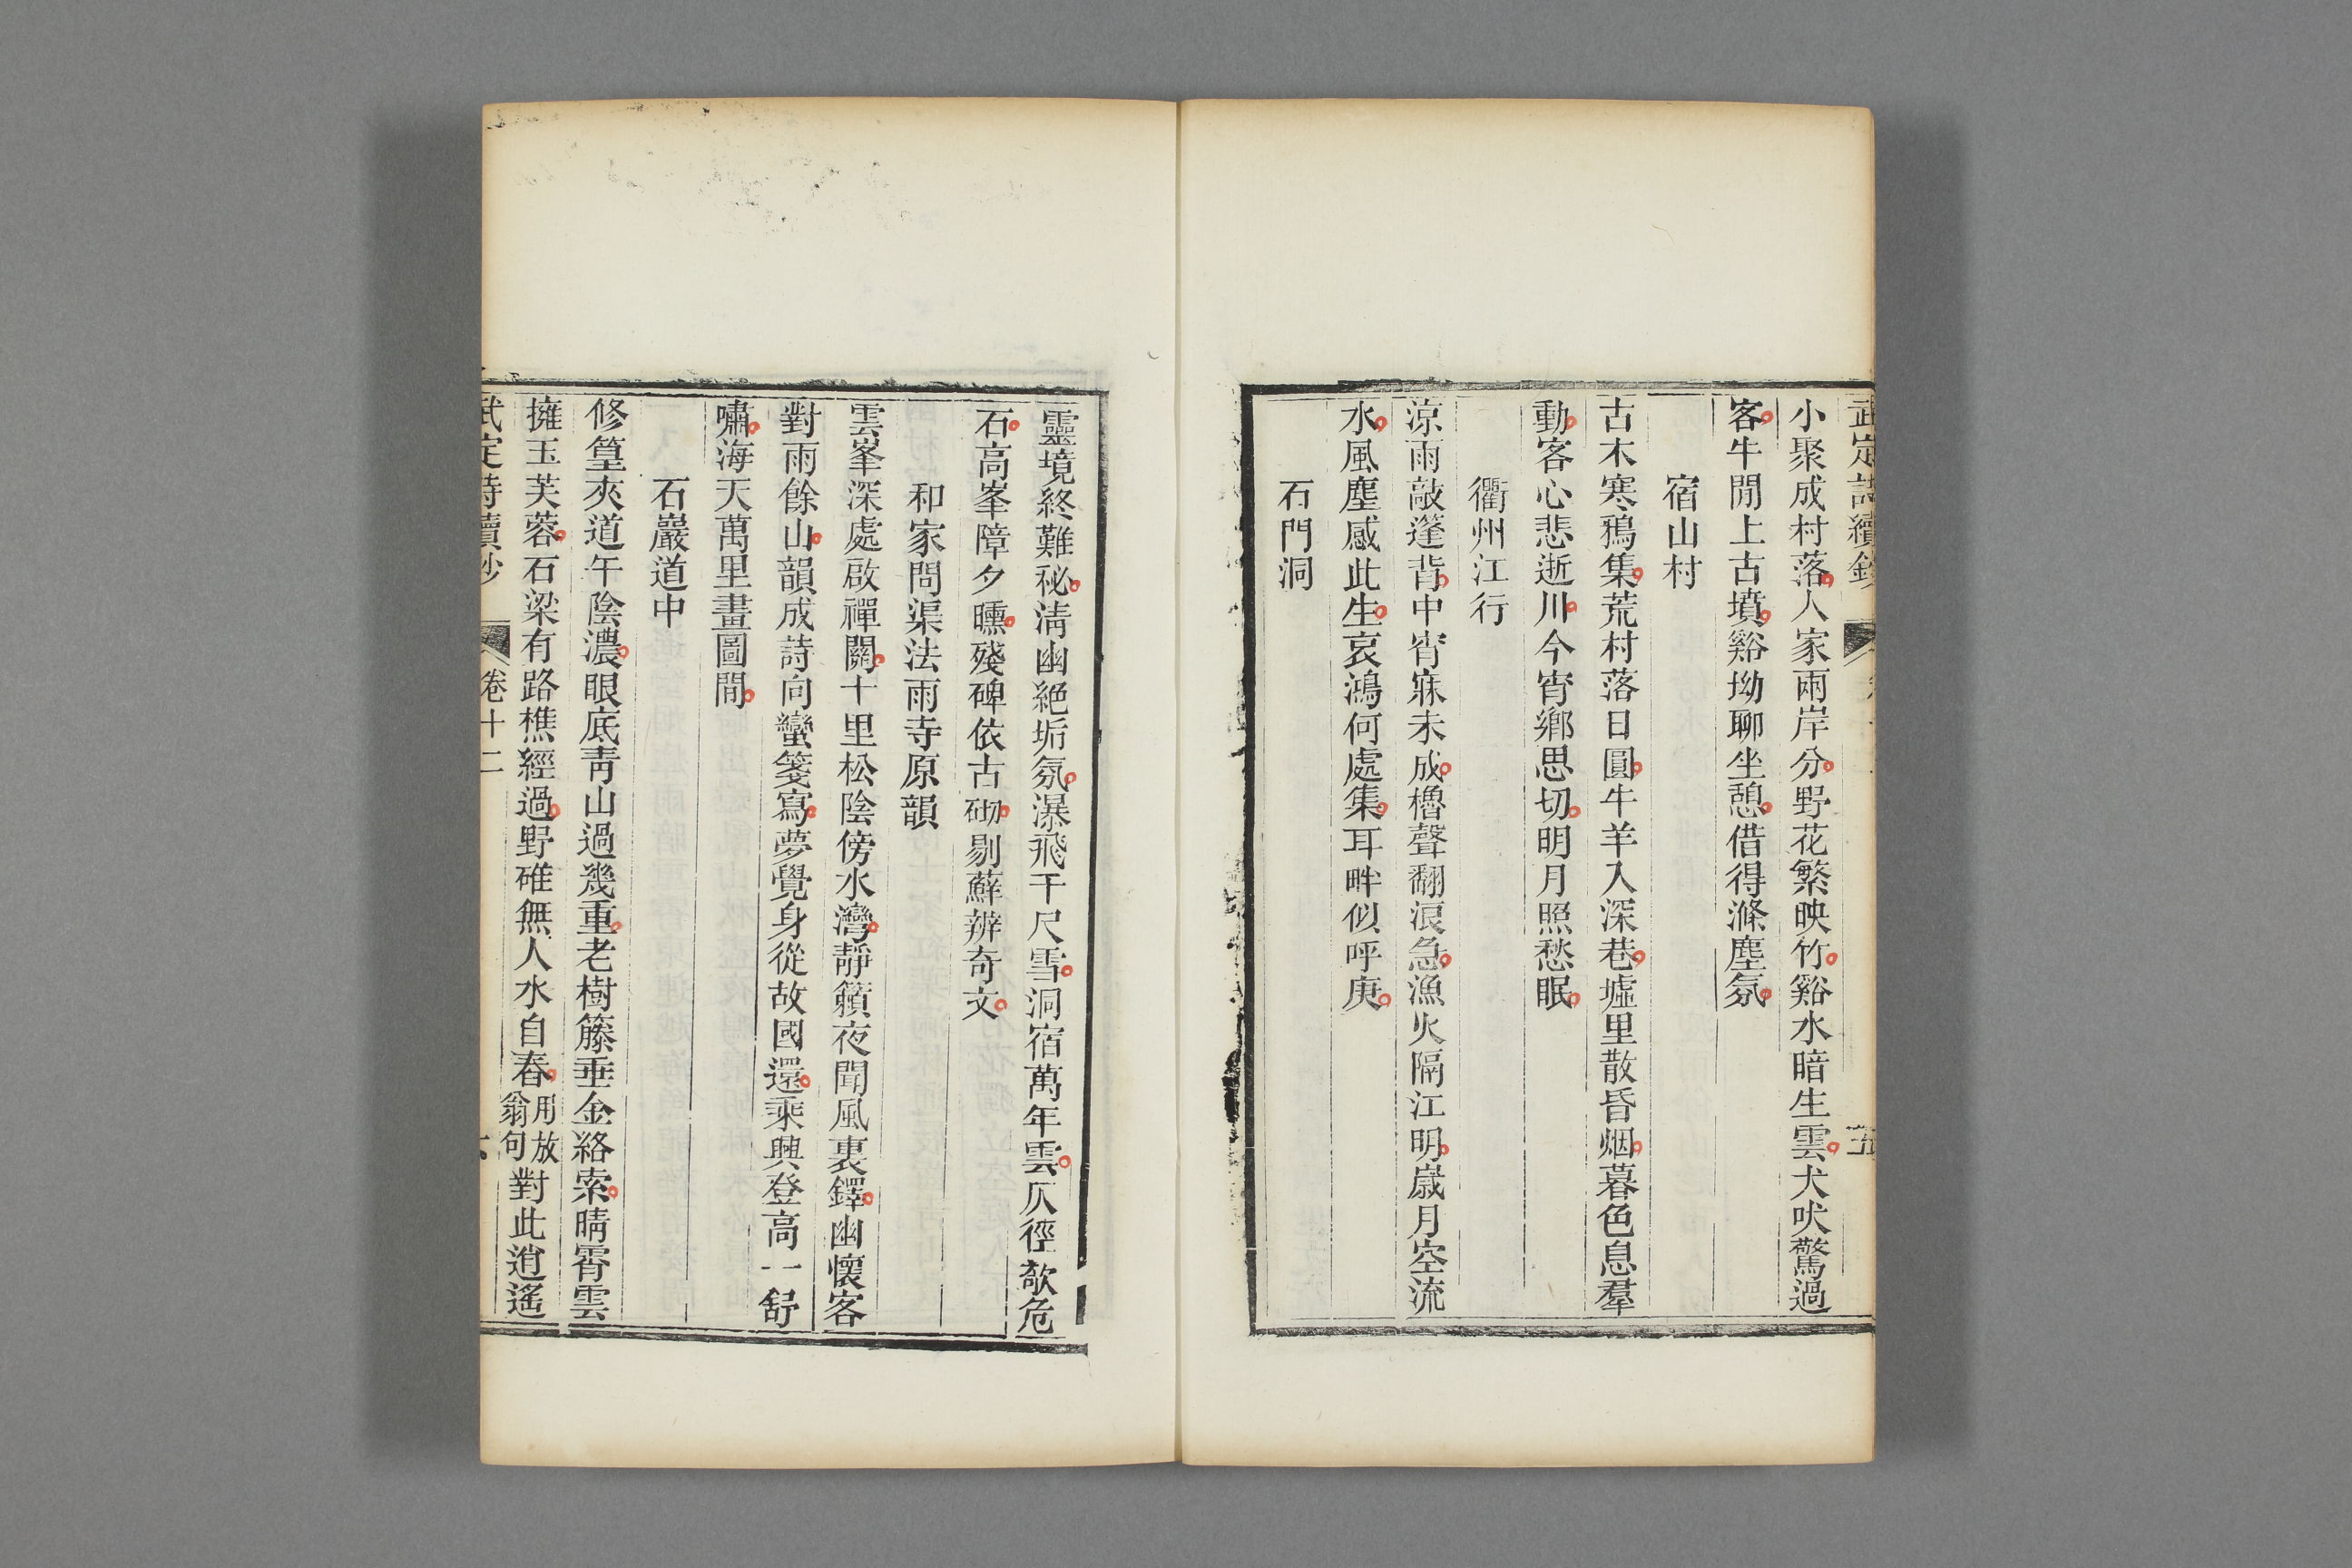 武定詩續鈔
五
小聚成村落人家兩岸分野花繁映竹谿水暗生雲犬吠驚過
客牛閒上古墳谿坳聊坐憩借得滌塵氛
宿山村
古木寒鴉集荒村落日圓牛羊入深巷墟里散昏烟暮色息羣
動客心悲逝川今宵鄉思切明月照愁眠
衢州江行
涼雨敲篷背中宵寐未成櫓聲翻浪急漁火隔江明歲月空流
水風塵感此生哀鴻何處集耳畔似呼庚
石門洞
靈境終難秘清幽絕垢氛瀑飛千尺雪洞宿萬年雲仄徑欹危
石高峯障夕曛殘碑依古砌剔蘚辨奇文
和家問渠法雨寺原韻
雲峯深處啟禪關十里松陰傍水灣靜籟夜聞風裏鐸幽懷客
對雨餘山韻成詩向蠻箋寫夢覺身從故國還乘興登高一舒
嘯海天萬里畫圖間
石巖道中
修篁夾道午陰濃眼底靑山過幾重老樹籐垂金絡索晴霄雲
擁玉芙蓉石梁有路樵經過野碓無人水自舂用放翁句對此逍遙
武定詩續鈔
卷十二